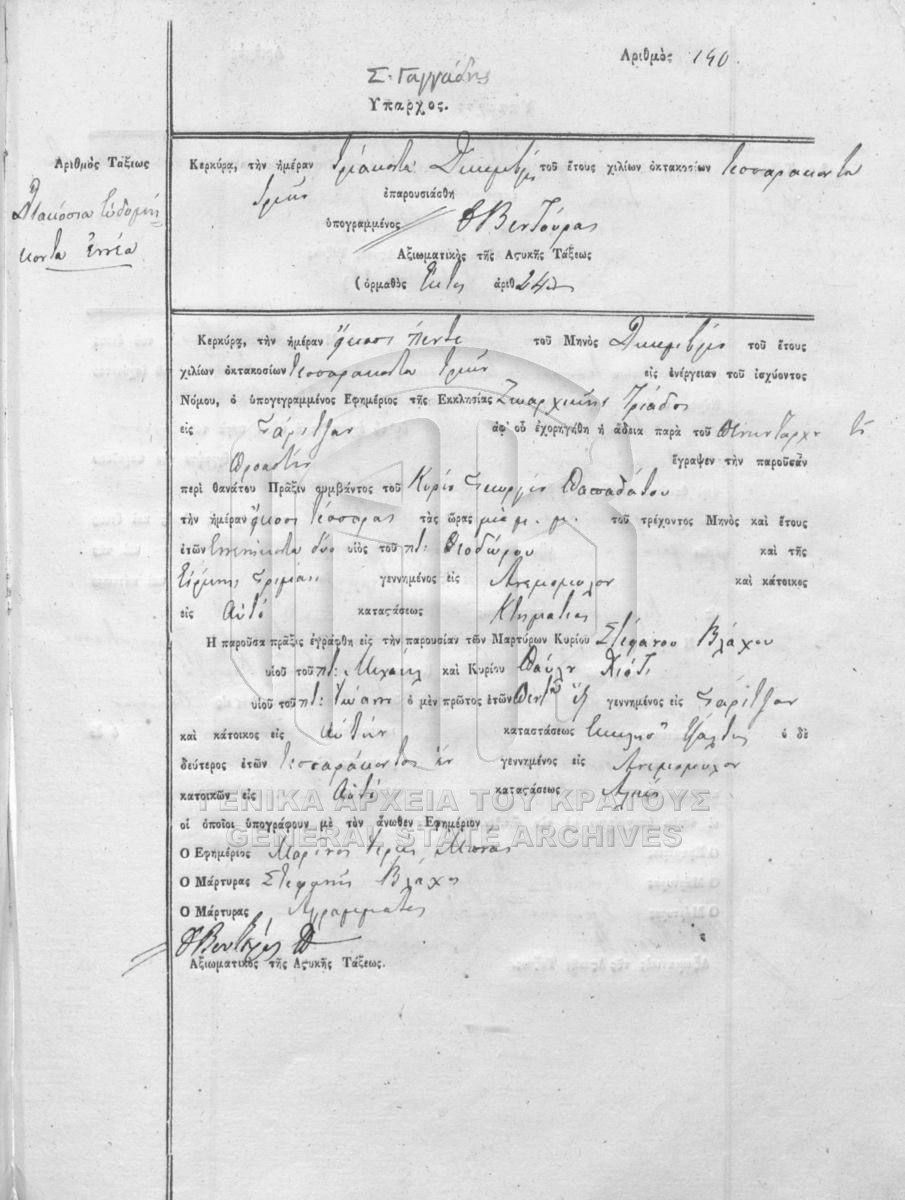 Ἀριθμὸς 190.
Σ. Γαγγάδης
Ὕπαρχος.
Ἀριθμὸς Τάξεως
Διακόσια ἑβδομή-
κοντα ἐννέα
Κερκύρᾳ, τὴν ἡμέραν τριάκοντα Δικεμβρίου τοῦ ἔτους χιλίων ὀκτακοσίων τεσσαράκοντα
τρεῖς ἐπαρουσιάσθη
ὑπογραμμένος Βεντούρας
Ἀξιωματικὸς τῆς Ἀστυκῆς Τάξεως
(ὁρμαθὸς Ἕκτος ἀριθ
Κερκύρᾳ, τὴν ἡμέραν ἤκοσι πέντε τοῦ Μηνὸς Δικεμβρίου τοῦ ἔτους
χιλίων ὀκτακοσίων τεσσαράκοντα τρεῖς εἰς ἐνέργειαν τοῦ ἰσχύοντος
Νόμου, ὁ ὑπογεγραμμένος Ἐφημέριος τῆς Εκκλησίας Τριάδος
εἰς Γαρίτζαν ἀφ' οὗ ἐχορηγήθη ἡ ἄδεια παρὰ τοῦ
Προαστίου ἔγραψεν τὴν παροῦσαν
περὶ θανάτου Πρᾶξιν συμβάντος τοῦ Κυρίου Γεωργίου Παπαδάτου
τὴν ἡμέραν ἤκοσι τέσσαρας τὰς ὥρας μία μ. μ. τοῦ τρέχοντος Μηνὸς καὶ ἔτους
ἐτῶν ἐνενήκοντα δύο υἱὸς τοῦ ποτ: Θεοδώρου καὶ τῆς
Εἰρήνης γεννημένος εἰς Ἀνεμόμυλον καὶ κάτοικος
εἰς Αὐτό καταστάσεως Κτηματίας
Ἡ παροῦσα πρᾶξις ἐγράφθη εἰς τὴν παρουσίαν τῶν Μαρτύρων Κυρίου Στέφανου Βλάχου
υἱοῦ τοῦ ποτ: Μιχαήλ καὶ Κυρίου Παύλου
υἱοῦ τοῦ ποτ: Ἰωάννου ὁ μὲν πρῶτος ἐτῶν ἕξ γεννημένος εἰς Γαρίτζαν
καὶ κάτοικος εἰς Αὐτήν καταστάσεως ὁ δὲ
δεύτερος ἐτῶν τεσσαράκοντα ἕν γεννημένος εἰς Ἀνεμόμυλον
κατοικῶν εἰς Αὐτό καταστάσεως
οἱ ὁποῖοι ὑπογράφουν μὲ τὸν ἄνωθεν Ἐφημέριον
Ὁ Ἐφημέριος Μαρίνος Ἱερεὺς
Ὁ Μάρτυρας Στεφανής Βλάχος
Ὁ Μάρτυρας Ἀγράμματος
Ἀξιωματικὸς τῆς Ἀστυκῆς Τάξεως.
ΓΕΝΙΚΑ ΑΡΧΕΙΑ ΤΟΥ ΚΡΑΤΟΥΣ
GENERAL STATE ARCHIVES